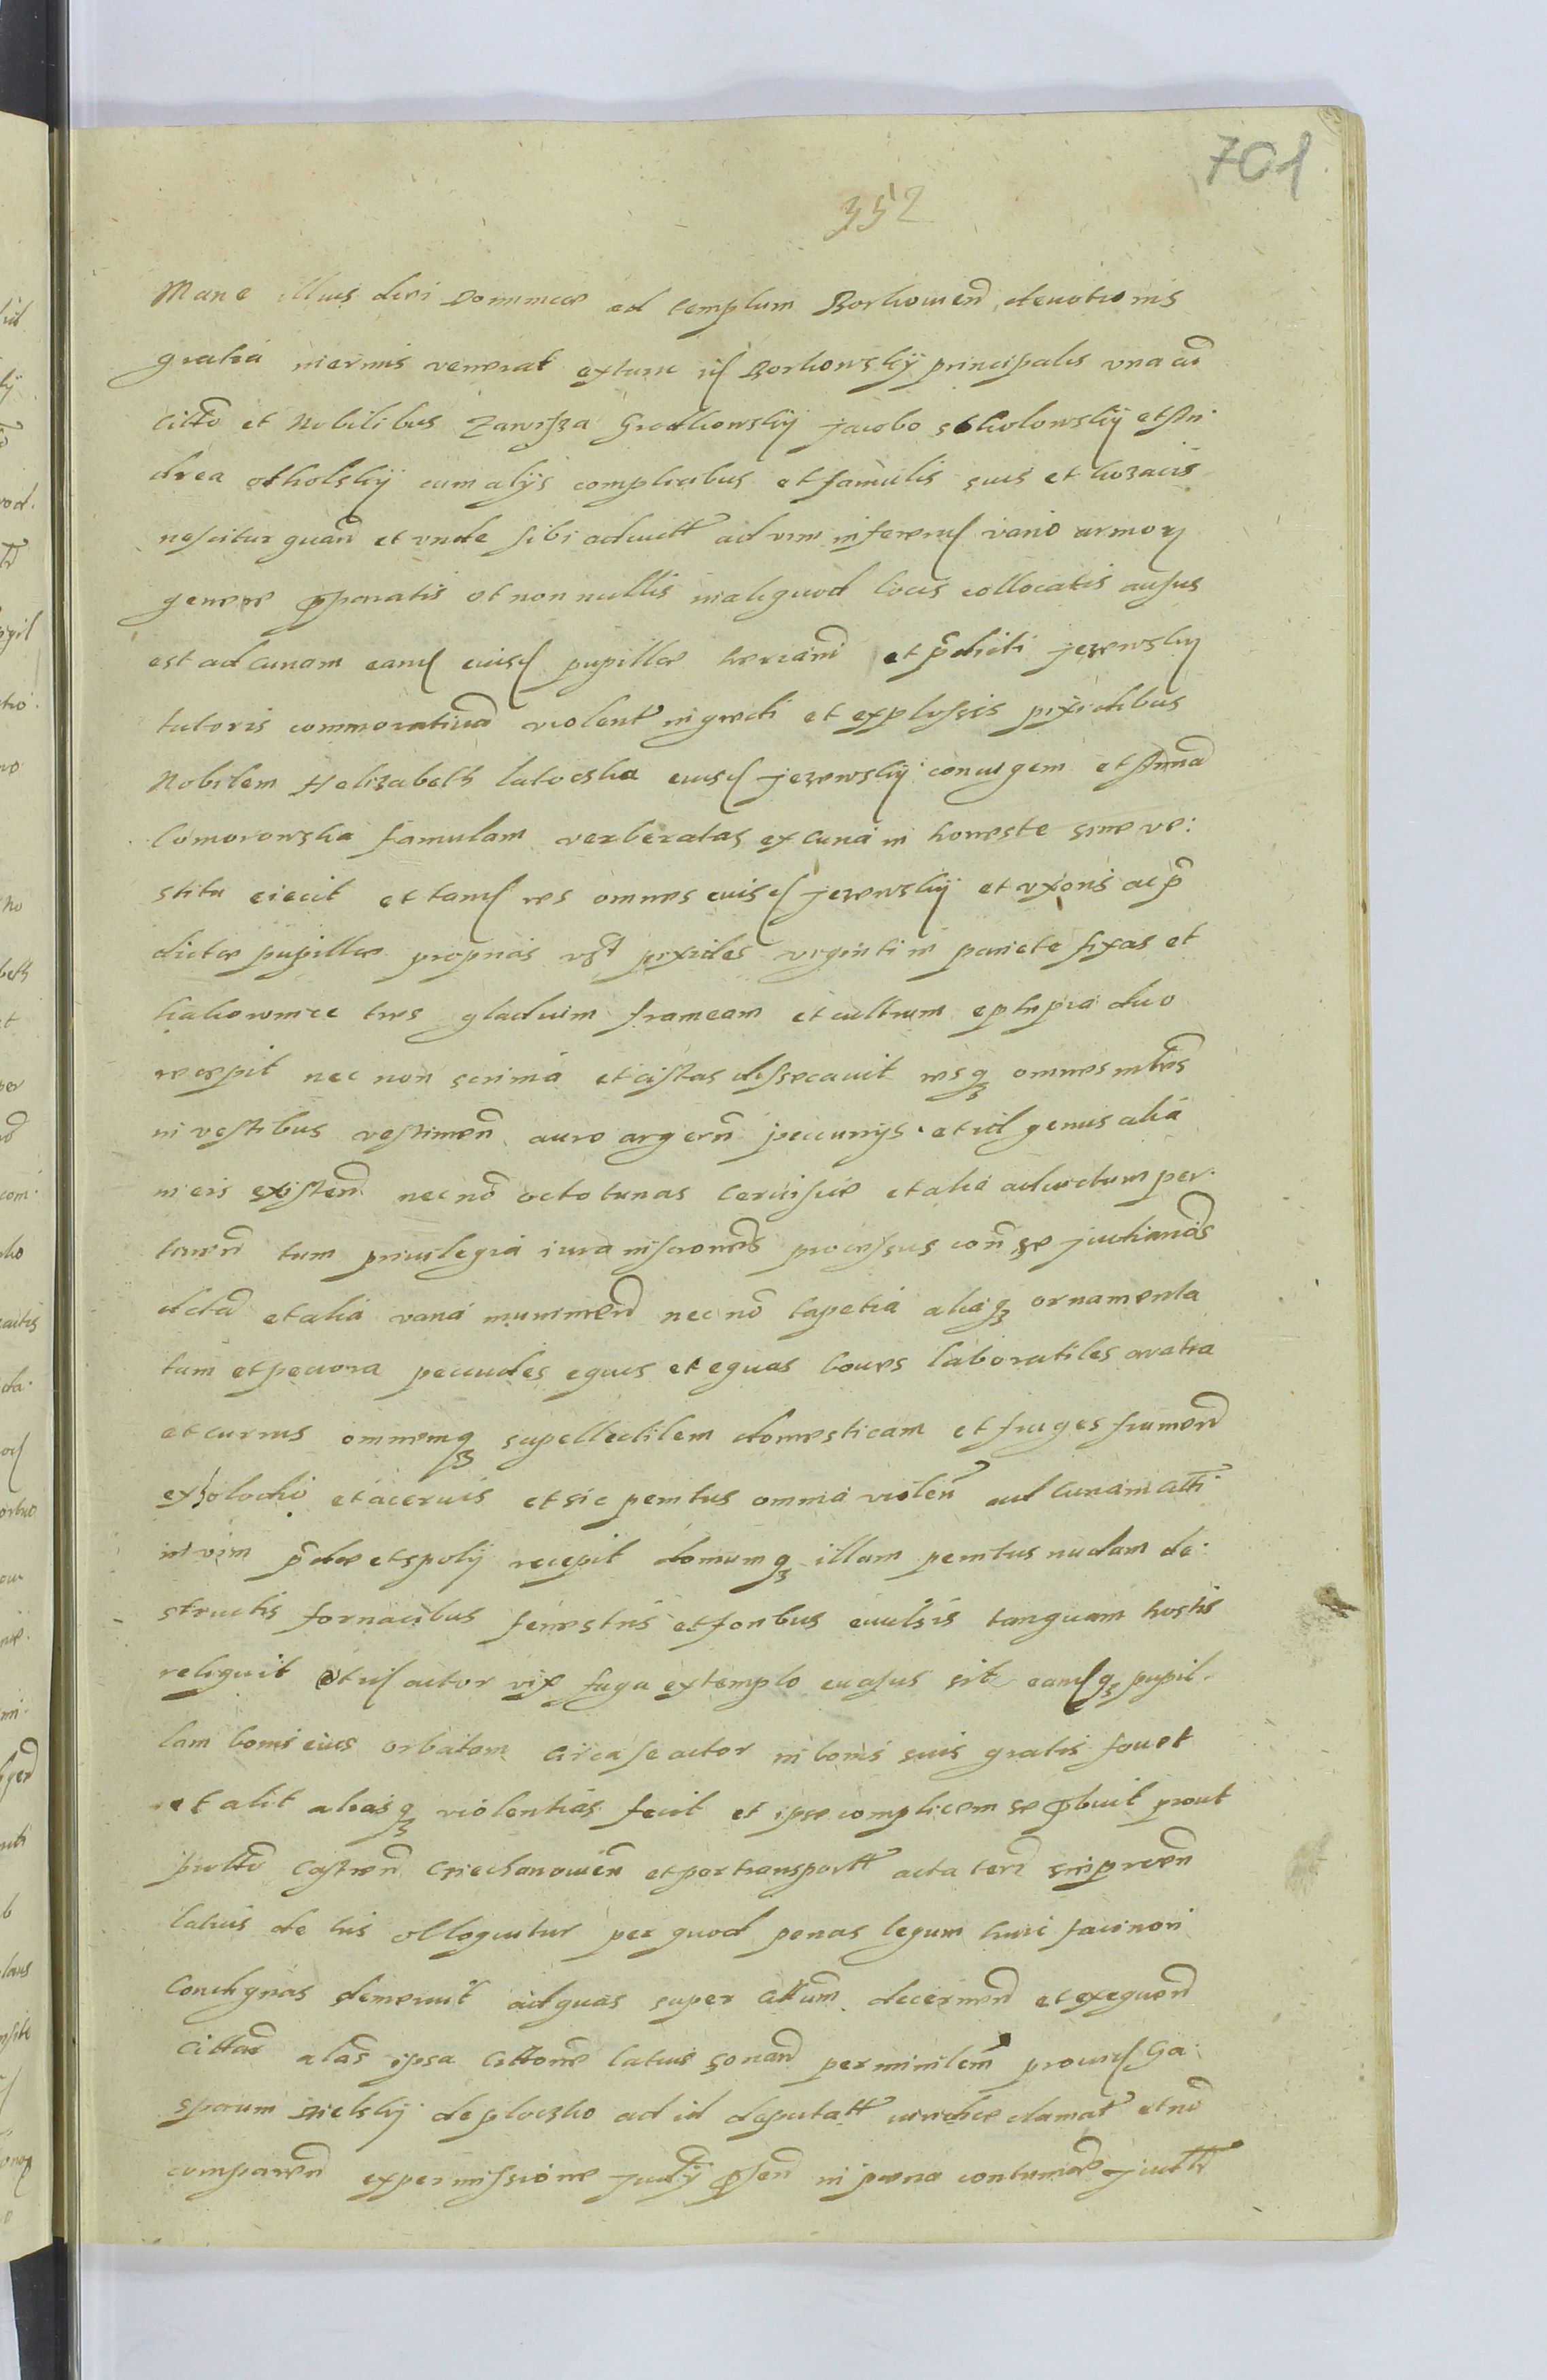 701
352
Mane illius diei Dominicæ ad templum Borkowien̄ devotionis
gratia inermis venerat extunc id Borkowskÿ principalis vna cū
Citto et Nobilibus Zawisza Grodkowskÿ Jacobo Sokolowskÿ et An
drea otholskÿ cum alÿs complicibus et famulis suis et kozacis
nescitur quan̄ et vnde sibi aductt ad vim inferend vario armorꝫ
genere pꝑaratis et non nullis in aliquod locis collocatis ausus
est ad Curiam eand eiusd pupillæ et p̄dicti Jezewskÿ
tutoris commorativā violentr ingredi et explossis pixidibus
Nobilem Helizabeth latoska eiusd Jezewskÿ coniugem et Annā
Comorowska famulam verberatas ex curia in honeste sine ve:
stitu eiecit et tand res omnes eiusd Jezewskÿ et vxoris ac p̄
dictæ pupillæ proprias vst pixides viginti in pariete fixas et
tres gladium frameam et cultrum ephipia duo
recepit nec non scrinia et cistas dissecavit resqꝫ omnes intres
in vestibus vestimen̄ auro argen̄ pecunÿs et id genus alia
in eis existen̄ nec nō octo tunas Cervisiæ et alia ad victum per
tinen̄ tum privilegia iura inscriones processus con̄ se Judicandas
et alia varia munimen̄ nec nō tapetia aliaqꝫ ornamenta
tum et pecora pecudes equos et equas boves laboratiles aratra
et currus omnemqꝫ supellectilem domesticam et fruges frumen̄
ex et acervis et sic penitus omnia violen̄ ad Curiam
in vim p̄dæ et spolÿ recepit domumqꝫ illam penitus nudam de
structis fornacibus fenestris et foribus evulsis tanquam hostis
reliquit et id actor vix fuga ex templo evasus sit eandqꝫ pupil
lam bonis eius orbatam circa se actor in bonis suis gratis fovet
et alit aliasqꝫ violentias fecit et ipse complicem se pꝑbuit prout
Castren̄ Cziechanowien̄ et per transportt acta terr
latius de his olloquitur per quod penas legum huic facinori
Condignas demeruit ad quas super decernen̄ et exequen̄
Cittar als̄ ipsa Cittone latius sonan̄ per ministm provid Ga
sparum Bielskÿ de plocsko ad id deputatt iuridice clamatr et nō
comparen̄ ex permissione Judicÿ pꝑsen̄ in pœna contumaciæ Judicÿ